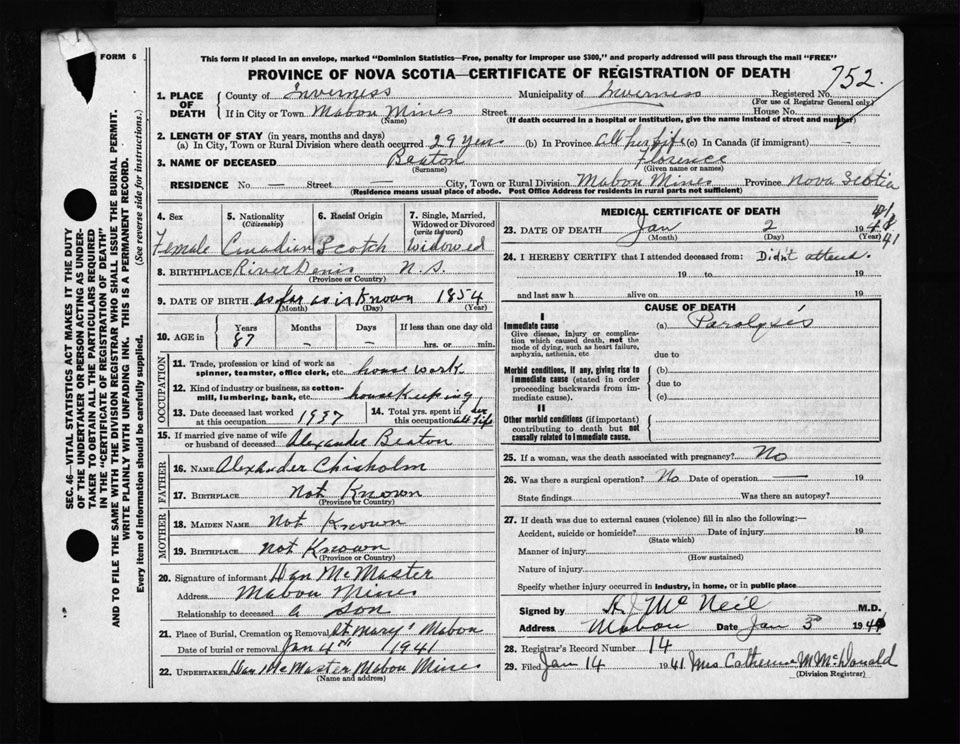 FORM 6
This form if placed in an envelope, marked "Dominion Statistics—Free, penalty for improper use $300," and properly addressed will pass through the mail "FREE"
PROVINCE OF NOVA SCOTIA—CERTIFICATE OF REGISTRATION OF DEATH
752
1. PLACE OF DEATH
County of Inverness Municipality of Inverness Registered No.
(For use of Registrar General only)
If in City or Town Mabou Mines Street House No.
(Name) (If death occurred in a hospital or institution, give the name instead of street and number)
2. LENGTH OF STAY (in years, months and days)
(a) In City, Town or Rural Division where death occurred 29 years (b) In Province All her life (c) In Canada (if immigrant) —
3. NAME OF DECEASED Beaton Florence
(Surname) (Given name or names)
RESIDENCE No — Street — City, Town or Rural Division Mabou Mines Province Nova Scotia
(Residence means usual place of abode. Post Office Address for residents in rural parts not sufficient)
4. Sex 5. Nationality (Citizenship) 6. Racial Origin 7. Single, Married, Widowed or Divorced (write the word)
Female Canadian Scotch Widowed
8. BIRTHPLACE River Denis N.S.
(Province or Country)
9. DATE OF BIRTH as far as is Known 1854
(Month) (Day) (Year)
10. AGE in Years Months Days If less than one day old
87 – – hrs. or min.
OCCUPATION
11. Trade, profession or kind of work as spinner, teamster, office clerk, etc. house work
12. Kind of industry or business, as cotton-mill, lumbering, bank, etc. housekeeping
13. Date deceased last worked at this occupation 1937 14. Total yrs. spent in this occupation all her life
15. If married give name of wife or husband of deceased Alexander Beaton
FATHER
16. NAME Alexander Chisholm
17. BIRTHPLACE Not Known
(Province or Country)
MOTHER
18. MAIDEN NAME Not Known
19. BIRTHPLACE Not Known
(Province or Country)
20. Signature of informant Dan McMaster
Address Mabou Mines
Relationship to deceased a son
21. Place of Burial, Cremation or Removal St Mary's Mabou
Date of burial or removal Jan 4th 1941
22. UNDERTAKER Dan McMaster Mabou Mines
(Name and address)
MEDICAL CERTIFICATE OF DEATH
23. DATE OF DEATH Jan 2 1941
(Month) (Day) (Year)
41
24. I HEREBY CERTIFY that I attended deceased from: Didn't attend.
19 to 19
and last saw h alive on 19
CAUSE OF DEATH
I
Immediate cause
Give disease, injury or complication which caused death, not the mode of dying, such as heart failure, asphyxia, asthenia, etc
(a) Paralysis
due to
Morbid conditions, if any, giving rise to immediate cause (stated in order proceeding backwards from immediate cause).
(b)
due to
(c)
II
Other morbid conditions (if important) contributing to death but not causally related to immediate cause.
25. If a woman, was the death associated with pregnancy? No
26. Was there a surgical operation? No Date of operation — 19
State findings Was there an autopsy?
27. If death was due to external causes (violence) fill in also the following:—
Accident, suicide or homicide? Date of injury 19
(State which)
Manner of injury
(How sustained)
Nature of injury
Specify whether injury occurred in industry, in home, or in public place
Signed by H J McNeil M.D.
Address Mabou Date Jan 3 1941
28. Registrar's Record Number 14
29. Filed Jan 14 1941 Mrs Catherine M McDonald
(Division Registrar)
SEC. 46—VITAL STATISTICS ACT MAKES IT THE DUTY
OF THE UNDERTAKER OR PERSON ACTING AS UNDER-
TAKER TO OBTAIN ALL THE PARTICULARS REQUIRED
IN THE "CERTIFICATE OF REGISTRATION OF DEATH"
AND TO FILE THE SAME WITH THE DIVISION REGISTRAR WHO SHALL ISSUE THE BURIAL PERMIT.
WRITE PLAINLY WITH UNFADING INK. THIS IS A PERMANENT RECORD.
Every item of information should be carefully supplied. (See reverse side for instructions.)